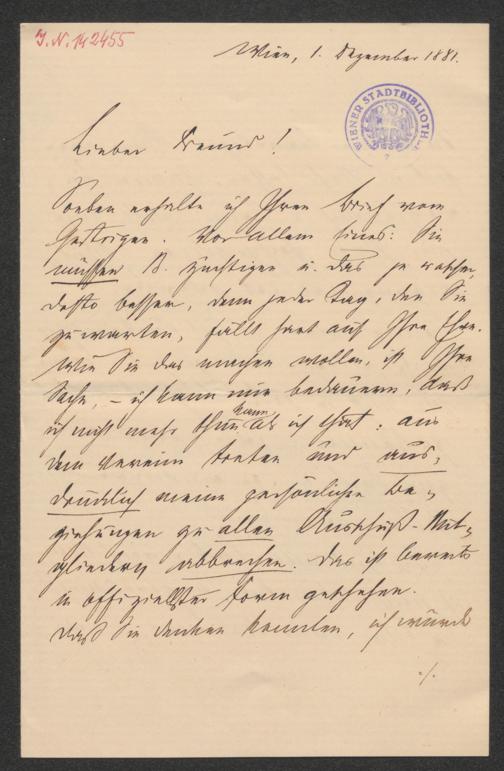 J.N. 142455
Wien, 1. Dezember 1881.
WIENER STADTBIBLIOTHEK
Lieber Freund!
Soeben erhalte ich Ihren Brief vom
Gestrigen. Vor allem Eines: Sie
müssen B. züchtigen u. das je rascher,
desto besser, denn jeder Tag, den Sie
zuwarten, fällt hart auf Ihre Ehre.
Wie Sie das machen wollen, ist Ihre
Sache, – ich kann nur bedauern, daß
ich nicht mehr thun kann als ich that: aus
dem Verein treten und aus-
drücklich meine persönlichen Be-
ziehungen zu allen Ausschuß-Mit-
gliedern abbrechen. Das ist bereits
in offiziellster Form geschehen.
Daß Sie denken konnten, ich würde
./.